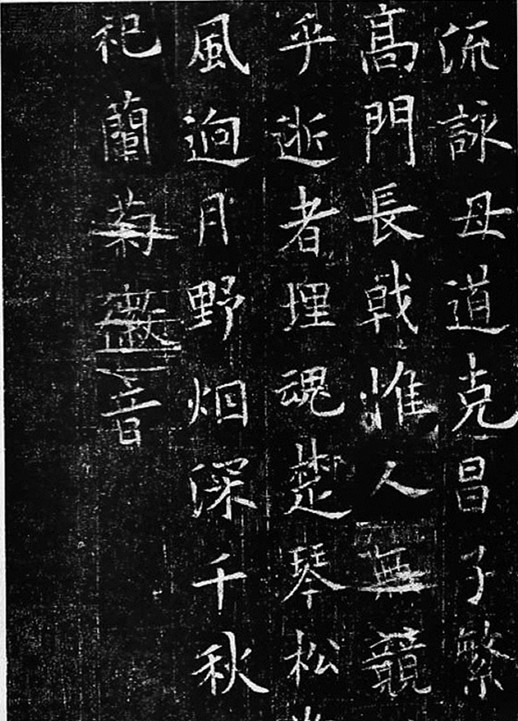 流詠母道克昌子繁
高門長戟惟人無競
乎逝者埋魂楚琴松
風逈月野烟深千秋
祀蘭菊音